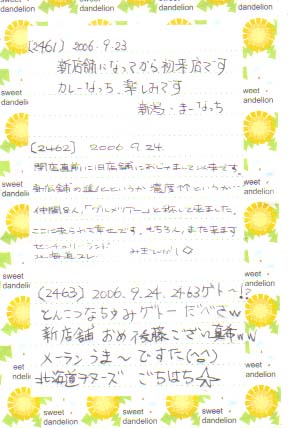 [2461] 2006.9.23
新店舗になってから初来店です
カレーなっち、楽しみです
新潟・まーなっち
[2462] 2006 9.24
閉店直前に旧店舗におじゃまして以来です。
新店舗の進化というか濃度?というか
仲間8人、「グルメツアー」と称して来ました。
ここに来られて幸せです。もちろん、また来ます
センチュリーランド
北海道
[2463) 2006.9.24. 2463ゲトー!?
とんこつなちゅみゲトー だべさw
新店舗 おめ後藤ござい真希ww
メーラン うま〜 ですた(^o^)
北海道 ごちはち☆
sweet dandelion
sweet dandelion
sweet dandelion
sweet dandelion
sweet dandelion
sweet dandelion
sweet dandelion
sweet dandelion
sweet dandelion
sweet dandelion